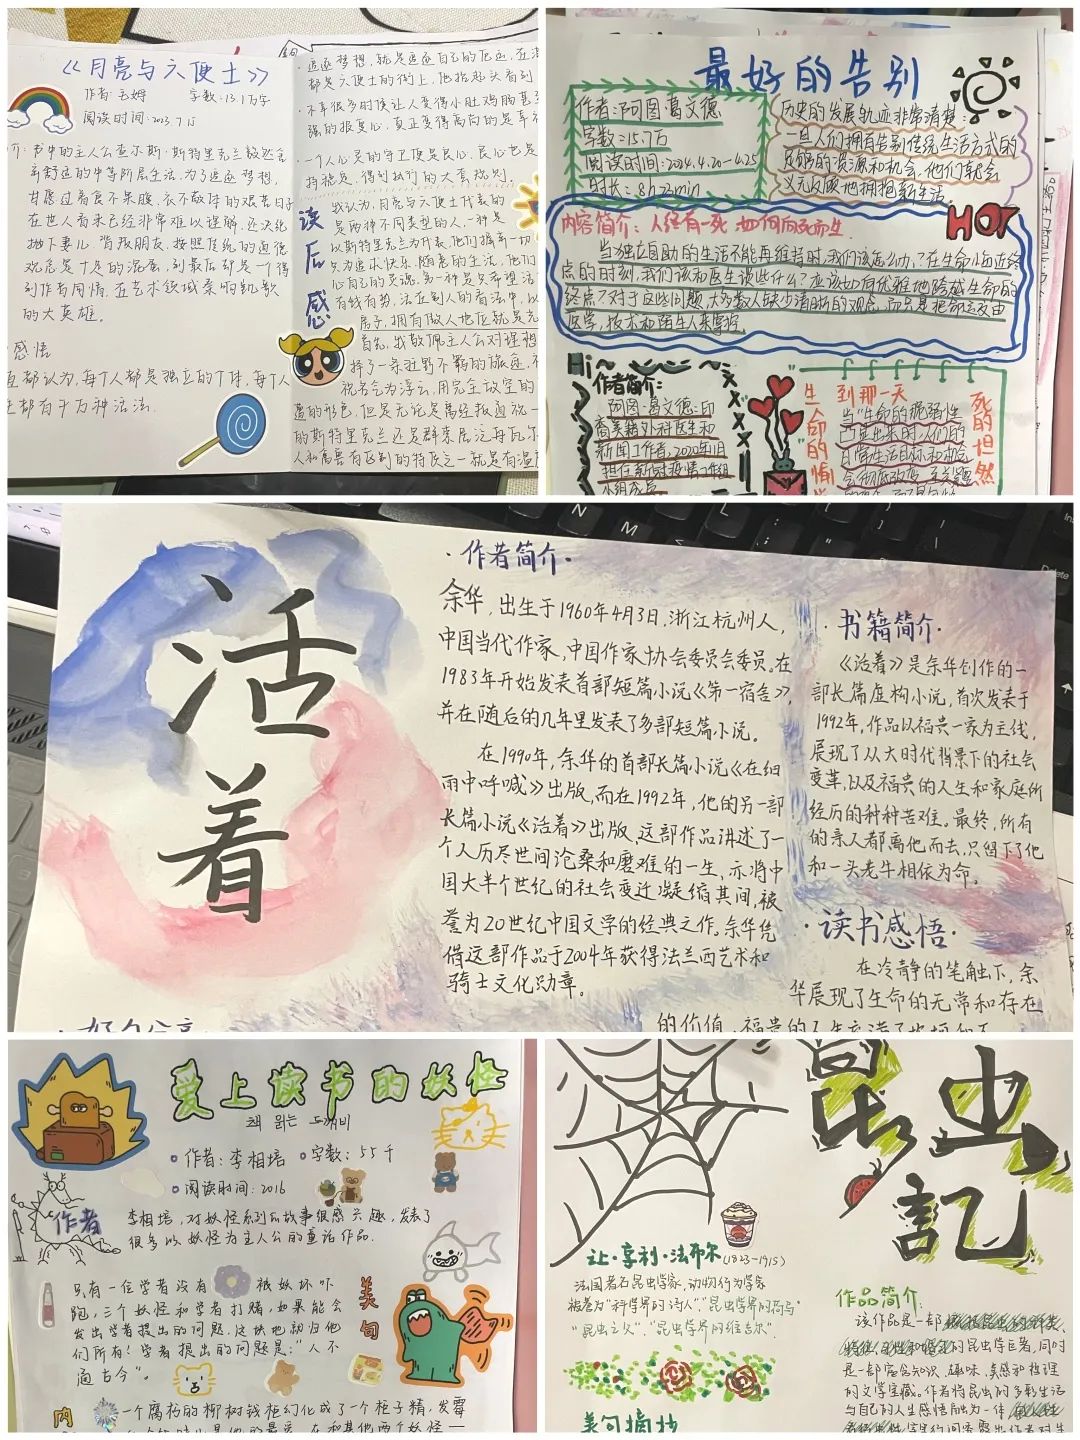 《月亮与六便士》
作者:毛姆 字数:13.1万字
阅读时间:2023.7.15
介:书中的主人公查尔斯·斯特里克兰毅然舍
弃舒适的中等阶层生活,为了追逐梦想,
甘愿过着食不果腹、衣不蔽体的艰苦日子
在世人看来已经非常难以理解,还决绝
抛下妻儿、背叛朋友,按照传统的道德
观念是十足的混蛋,到最后却是一个得
到作者同情,在艺术领域奏响凯歌
的大英雄。
感悟
直都认为,每个人都是独立的个体,每个人
都有千万种活法.
追逐梦想,就是追逐自己的厄运,在满
都是六便士的街上,他抬起头看到
一个人心灵的守卫便是良心,良心也是
读后感
我认为,月亮与六便士代表的
是两种不同类型的人,一种是
以斯特里克兰为代表,他们摒弃一切
只为追求快乐、随意的生活,他们
心自己的灵魂,另一种是只希望活
有钱有势,活在别人的看法中,以
房子,拥有傲人地位就是充
首先,我敬佩主人公对理想
择了一条狂野不羁的旅途,不
视名气为浮云,用完全放空的
的斯特里克兰还是群来层泛每瓦尔
人和禽兽有区别的特质之一就是有温度
最好的告别
作者:阿图·葛文德
字数:15.7万
阅读时间:2024.4.20-4.25
时长:8h23min
历史的发展轨迹非常清楚:
一旦人们拥有告别传统生活方式的
足够的资源和机会,他们就会
义无反顾地拥抱新生活。
HOT
内容简介:人终有一死 如何向死而生
当独立自助的生活不能再维持时,我们该怎么办?在生命临近终
点的时刻,我们该和医生谈些什么?应该如何优雅地跨越生命的
终点?对于这些问题,大多数人缺少清晰的观念,而只是把命运交由
医学,技术和陌生人来掌控
Hi~
作者简介:
阿图·葛文德:印
裔美籍外科医生和
新闻工作者,2020年11月
担任新冠疫情工作组
小组成员
生命的
到那一天
当"生命的脆弱性
凸显出来时,人们的
日常生活目标和动机
会彻底改变,至关重要
死的坦然
活着
·作者简介·
余华,出生于1960年4月3日,浙江杭州人,
中国当代作家,中国作家协会委员会委员。在
1983年开始发表首部短篇小说《第一宿舍》,
并在随后的几年里发表了多部短篇小说。
在1990年,余华的首部长篇小说《在细
雨中呼喊》出版,而在1992年,他的另一部
长篇小说《活着》出版,这部作品讲述了一
个人历尽世间沧桑和磨难的一生,亦将中
国大半个世纪的社会变迁凝缩其间,被
誉为20世纪中国文学的经典之作。余华凭
借这部作品于2004年获得法兰西艺术和
骑士文化勋章。
·书籍简介·
《活着》是余华创作的一
部长篇虚构小说,首次发表于
1992年,作品以福贵一家为主线,
展现了从大时代背景下的社会
变革,以及福贵的人生和家庭所
经历的种种苦难。最终,所有
的亲人都离他而去,只留下了他
和一头老牛相依为命。
·读书感悟·
在冷静的笔触下,余
华展现了生命的无常和存在
的价值,福贵的人生充满了坎坷和不
·好句分享·
爱上读书的妖怪
책 읽는 도깨비
作者:李相培 字数:55千
阅读时间:2016
作者
李相培,对妖怪系列的故事很感兴趣,发表了
很多以妖怪为主人公的童话作品.
美句
只有一位学者没有被妖怪吓
跑,三个妖怪和学者打赌,如果能会
发出学者提出的问题,这块地就归他
们所有!学者提出的问题是:"人不
通古今"。
内
一个腐朽的柳树钱柜幻化成了一个柜子精,发霉
昆虫記
让·亨利·法布尔(1823-1915)
法国著名昆虫学家,动物行为学家
被誉为"科学界的诗人"、"昆虫学界的荷马"
"昆虫之父"、"昆虫学界的维吉尔".
美句摘抄
作品简介:
该作品是一部
的昆虫学巨著,同时
是一部富含知识、趣味、美感和哲理
的文学宝藏。作者将昆虫的多彩生活
与自己的人生感悟融为一体